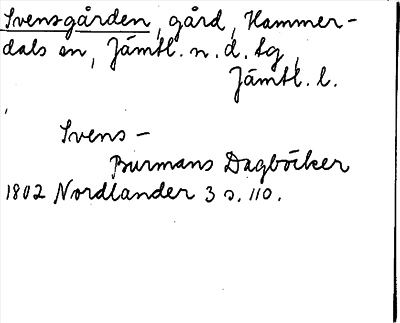 Svensgården, gård, Hammer-
dals sn, Jämtl. n. d. tg,
Jämtl. l.
Svens -
Burmans Dagböcker
1802 Nordlander 3 s. 110.